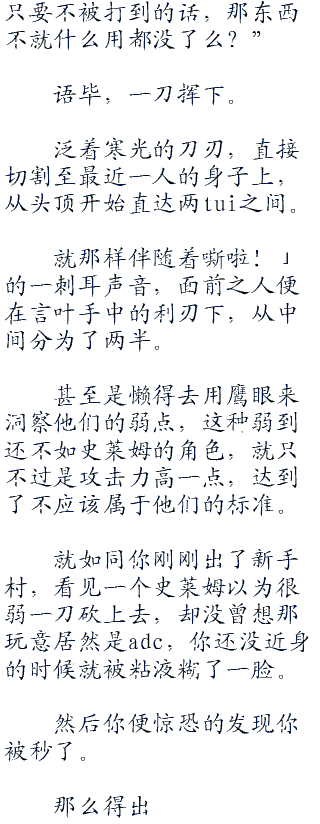 只要不被打到的话，那东西
不就什么用都没了么？”
语毕，一刀挥下。
泛着寒光的刀刃，直接
切割至最近一人的身子上，
从头顶开始直达两tui之间。
就那样伴随着嘶啦！」
的一刺耳声音，面前之人便
在言叶手中的利刃下，从中
间分为了两半。
甚至是懒得去用鹰眼来
洞察他们的弱点，这种弱到
还不如史莱姆的角色，就只
不过是攻击力高一点，达到
了不应该属于他们的标准。
就如同你刚刚出了新手
村，看见一个史莱姆以为很
弱一刀砍上去，却没曾想那
玩意居然是adc，你还没近身
的时候就被粘液糊了一脸。
然后你便惊恐的发现你
被秒了。
那么得出